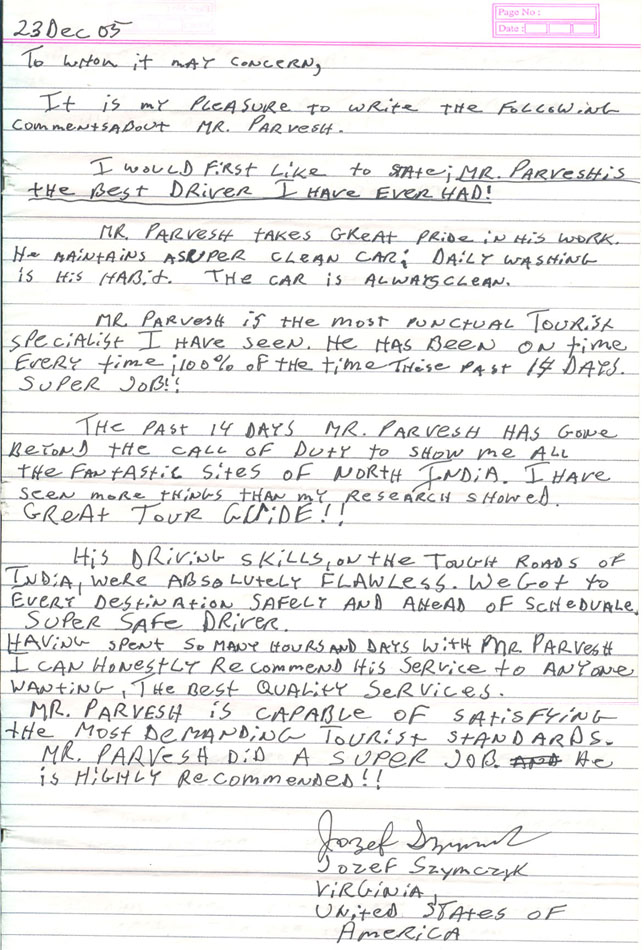 Page No :
Date :
23 Dec 05
To whom it may concern,
It is my pleasure to write the following
comments about Mr. Parvesh.
I would first like to state; Mr. Parvesh is
the best driver I have ever had!
Mr. Parvesh takes great pride in his work.
He maintains a super clean car; daily washing
is his habit. The car is always clean.
Mr. Parvesh is the most punctual tourist
specialist I have seen. He has been on time
every time; 100% of the time these past 14 days.
Super job!!
The past 14 days Mr. Parvesh has gone
beyond the call of duty to show me all
the fantastic sites of North India. I have
seen more things than my research showed.
Great tour guide!!
His driving skills, on the tough roads of
India, were absolutely flawless. We got to
every destination safely and ahead of scheduale.
Super safe driver.
Having spent so many hours and days with Mr. Parvesh
I can honestly recommend his service to anyone
wanting, the best quality services.
Mr. Parvesh is capable of satisfying
the most demanding tourist standards.
Mr. Parvesh did a super job. He
is highly recommended!!
Jozef Szymczyk
Virginia,
United States of
America